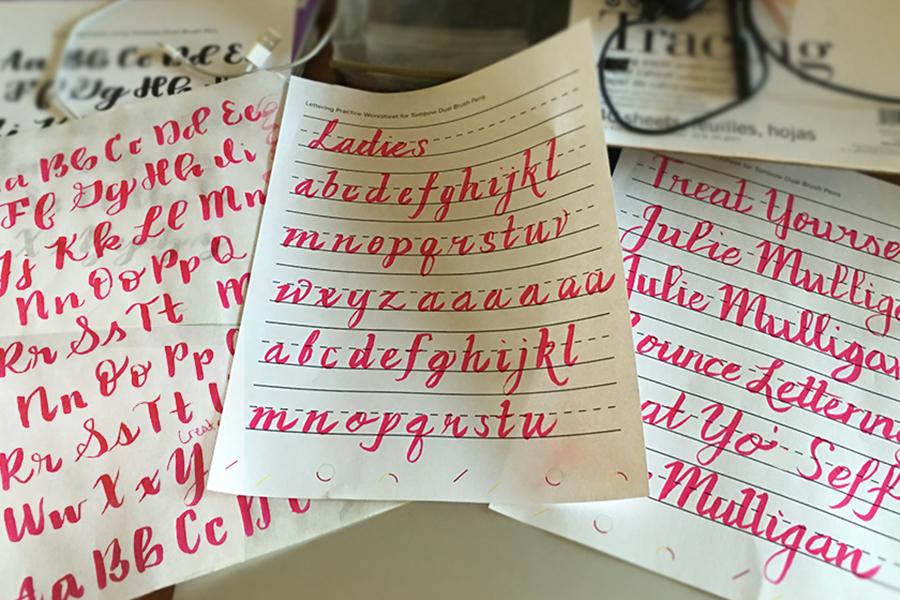 Aa Bb Cc Dd E
Ff Gg Hh
Tracing
sheets, feuilles, hojas
a Bb Cc Dd Ee
Ff Gg Hh Ii
Jj Kk Ll Mm
Nn Oo Pp Q
Rr Ss Tt
Nn Oo Pp
Rr Ss Tt
Ww Xx Y
Aa Bb Cc D
Lettering Practice Worksheet for Tombow Dual Brush Pens
Ladies
abcdefghijkl
mnopqrstuv
wxyz aaaaaa
abcdefghijkl
mnopqrstu
for Tombow Dual Brush Pens
Treat Yourse
Julie Mulliga
Julie Mulligan
ounce Lettering
at Yo' Self
Mulligan